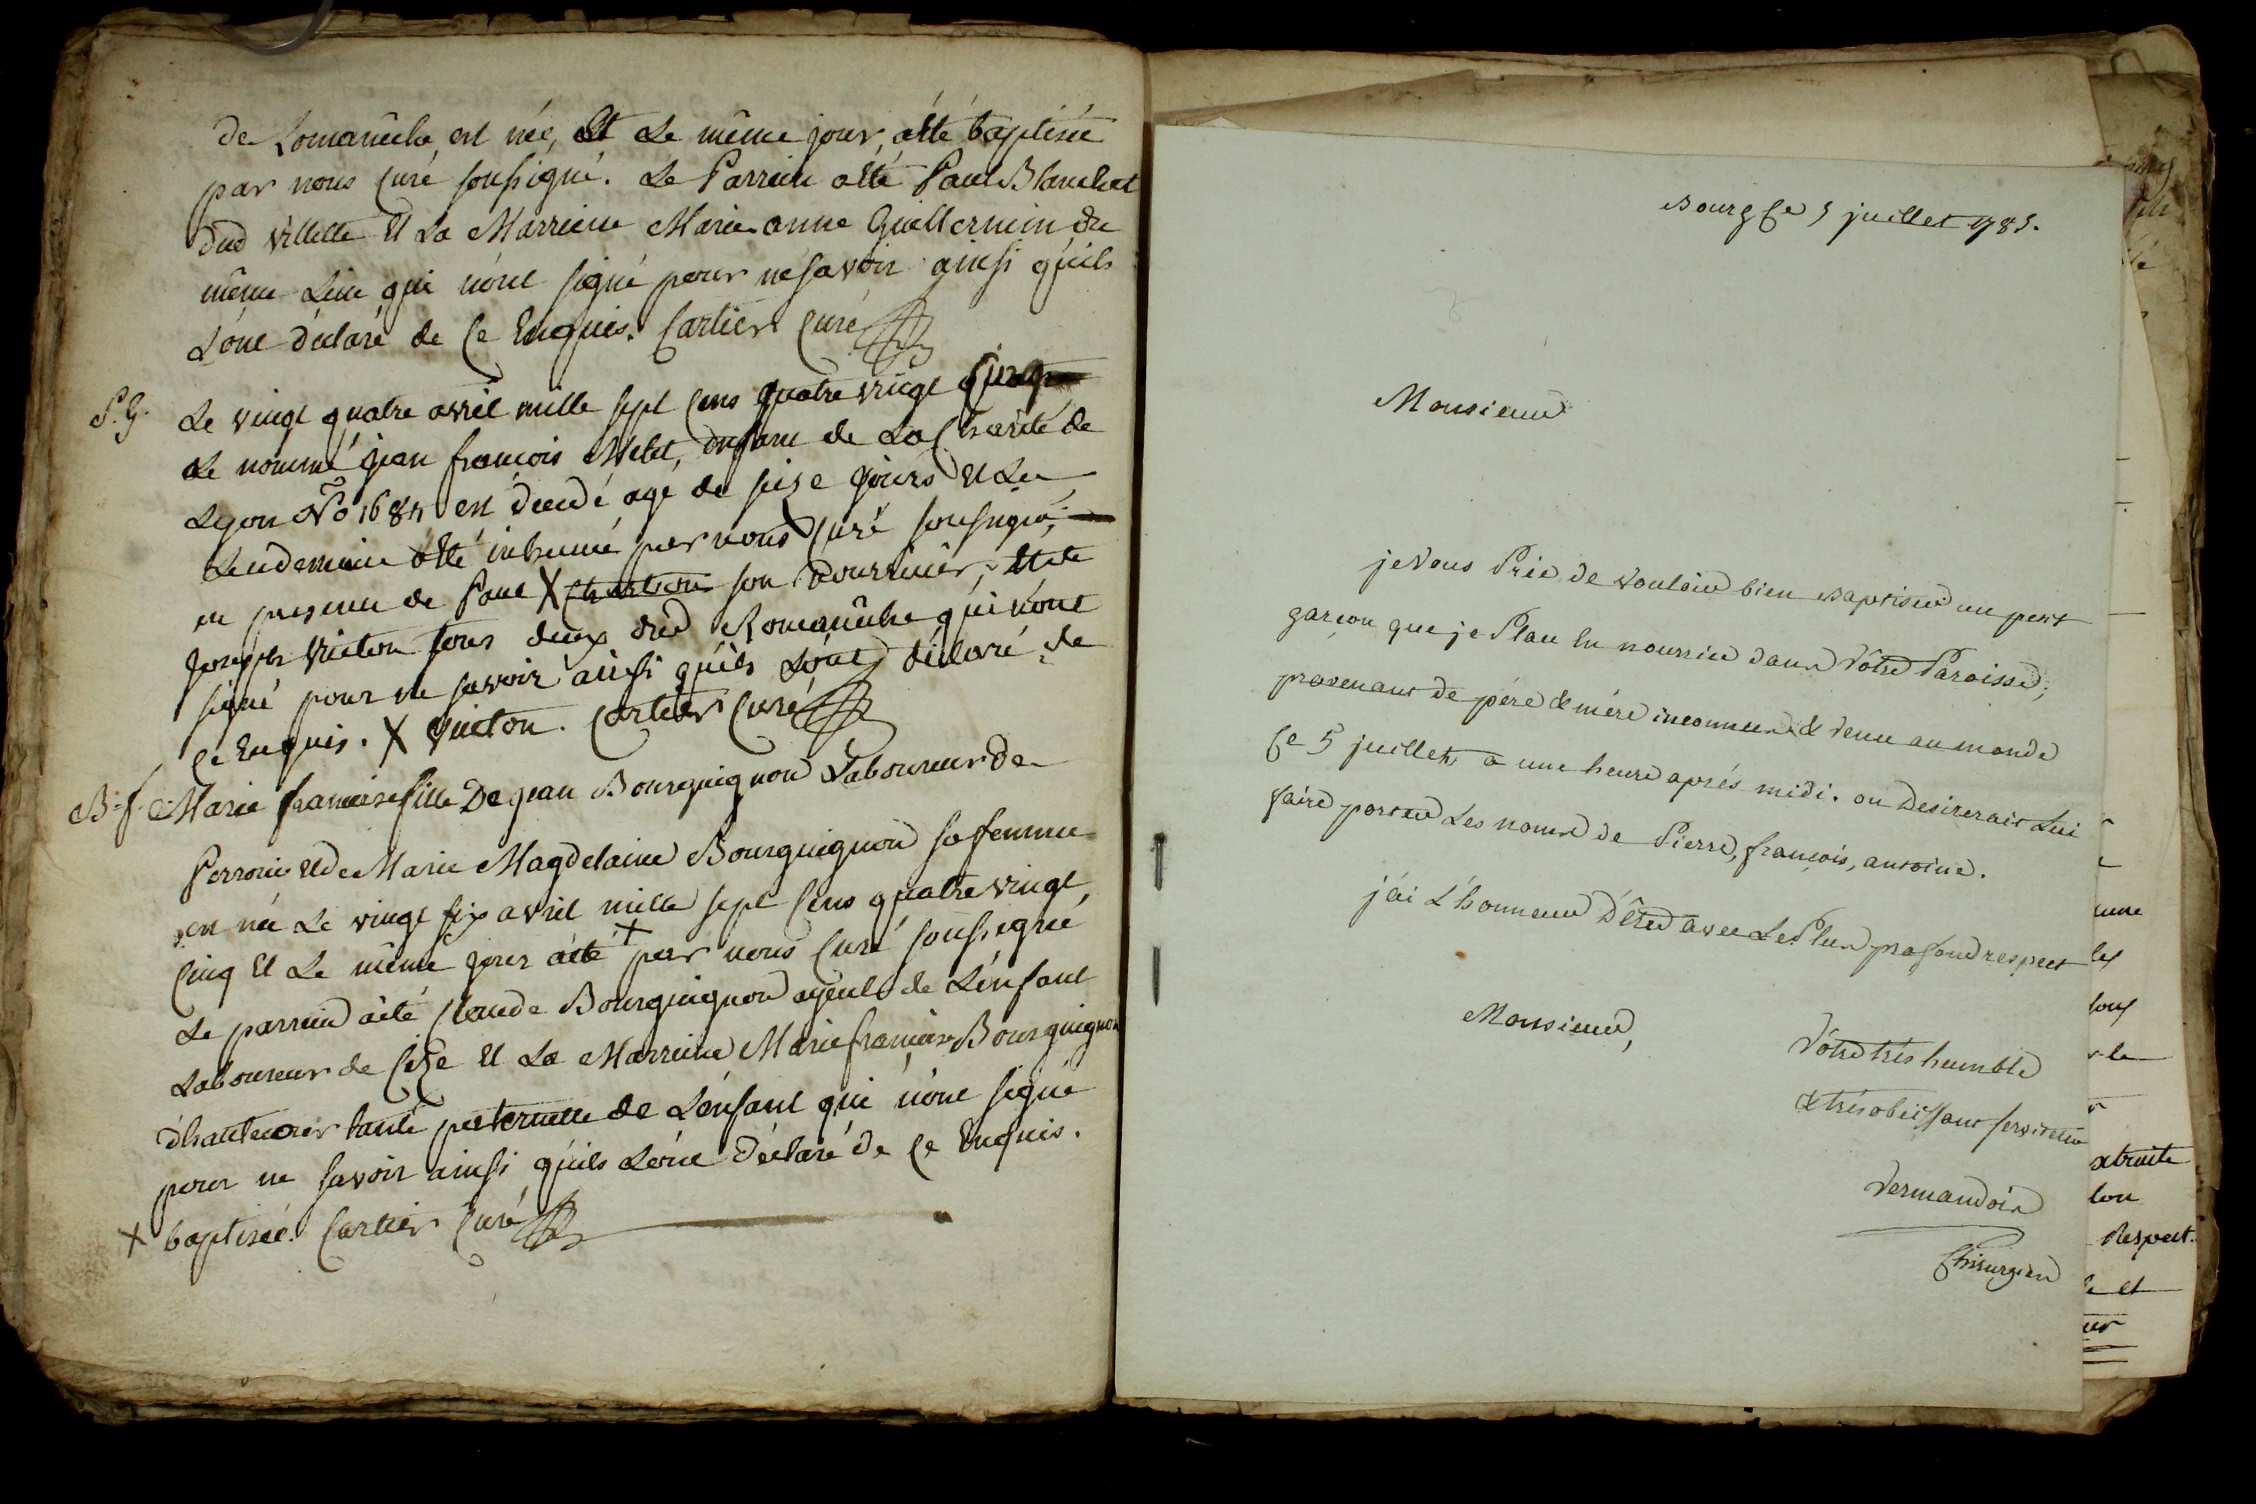 de Romanêche est née, et Le même jour, a êté baptisée
par nous Curé soussigné. Le Parrein a êté Paul Blanchet
dud villette et La Marreine Marie anne Guillermin du
même Lieu qui n'ont signé pour ne savoir ainsi qu'ils
L'ont déclaré de Ce Enquis. Cartier Curé
S.G. Le vingt quatre avril mille sept Cens quatre vingt Cinq
Le nommé jean françois Melet, enfant de La Charité de
Lyon No 1684 est décédé age de seize jours et Le
Lendemain a êté inhumé par nous Curé soussigné,
en presence de Paul X Chartron son Nourricier, et de
joseph Vuiton tous deux dud Romanêche qui n'ont
signé pour ne savoir ainsi qu'ils L'ont déclaré de
Ce Enquis. X Vuiton. Cartier Curé
B.f. Marie francoise fille De jean Bourguignon Laboureur de
Perroux et de Marie Magdelaine Bourguignon sa femme
est née Le vingt six avril mille sept Cens quatre vingt
Cinq et Le même jour a êté + par nous Curé soussigné
Le parrein a êté Claude Bourguignon ayeul de L'enfant
Laboureur de Cize et La Marreine Marie françoise Bourguignon
d'hautecour tante paternelle de L'enfant qui n'ont signé
pour ne savoir ainsi qu'ils L'ont déclaré de Ce Enquis.
X baptisée. Cartier Curé
Bourg Ce 5 juillet 1785.
Monsieur
je Vous Prie de vouloir bien Baptiser un petit
garçon que je Place En nourrice dans Vôtre Paroisse;
provenant de pére & mére inconnus & venu au monde
Ce 5 juillet, a une heure aprés midi. on Desirerait Lui
faire porter Les noms de Pierre, françois, antoine.
j'ai L'honneur D'être avec Le Plus profond respect
Monsieur,
Vôtre trés humble
& trés obéissant serviteur
Vermandois
Chirurgien
une
les
tous
le
lou
Respect.
et